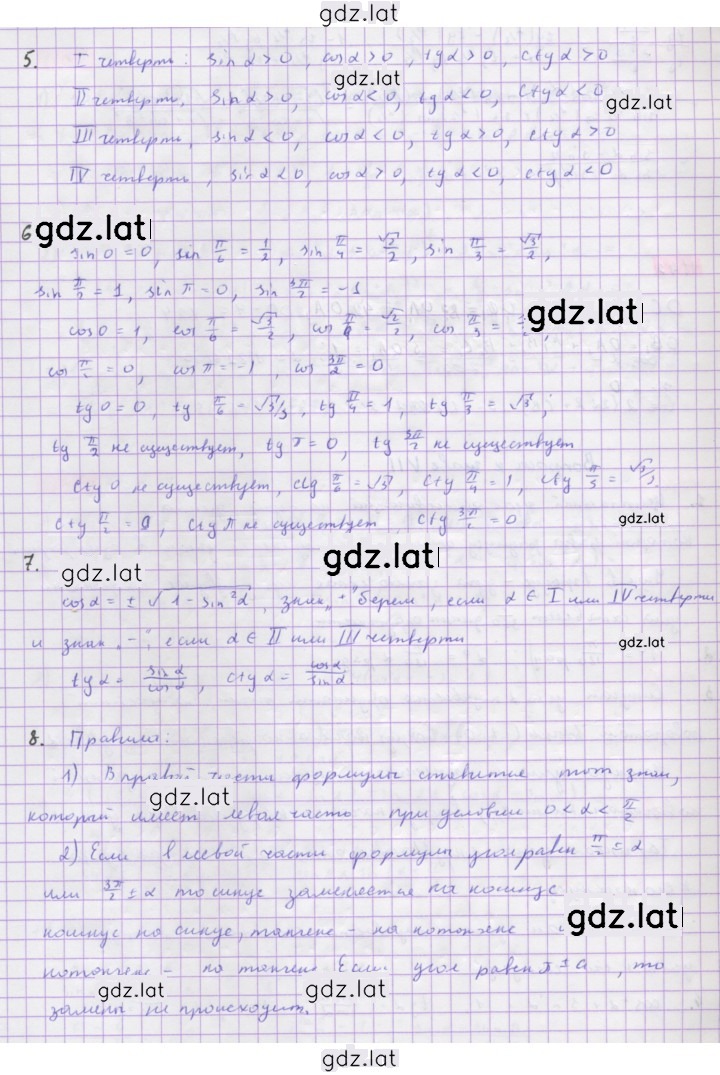 gdz.lat
5. I четверть: sin α > 0, cos α > 0, tg α > 0, ctg α > 0
gdz.lat
II четверть, sin α > 0, cos α < 0, tg α < 0, ctg α < 0
gdz.lat
III четверть, sin α < 0, cos α < 0, tg α > 0, ctg α > 0
IV четверть, sin α < 0, cos α > 0, tg α < 0, ctg α < 0
6 gdz.lat
sin 0 = 0, sin π/6 = 1/2, sin π/4 = √2/2, sin π/3 = √3/2,
sin π/2 = 1, sin π = 0, sin 3π/2 = -1
gdz.lat
cos 0 = 1, cos π/6 = √3/2, cos π/4 = √2/2, cos π/3 =
cos π/2 = 0, cos π = -1, cos 3π/2 = 0
tg 0 = 0, tg π/6 = √3/3, tg π/4 = 1, tg π/3 = √3;
tg π/2 не существует, tg π = 0, tg 3π/2 не существует
ctg 0 не существует, ctg π/6 = √3, ctg π/4 = 1, ctg π/3 = √3/3
ctg π/2 = 0, ctg π не существует, ctg 3π/2 = 0
gdz.lat
7.
gdz.lat
gdz.lat
cos α = ± √1 - sin²α, знак „+" берем, если α ∈ I или IV четверти
и знак „-", если α ∈ II или III четверти
gdz.lat
tg α = sin α/cos α, ctg α = cos α/sin α
8. Правила:
1) В правой части формулы ставится тот знак,
gdz.lat
который имеет левая часть при условии 0 < α < π/2
2) Если в левой части формулы угол равен π/2 ± α
или 3π/2 ± α то синус заменяется на косинус
gdz.lat
косинус на синус, тангенс - на котангенс
котангенс - на тангенс Если угол равен π ± α, то
gdz.lat
gdz.lat
замены не происходит.
gdz.lat